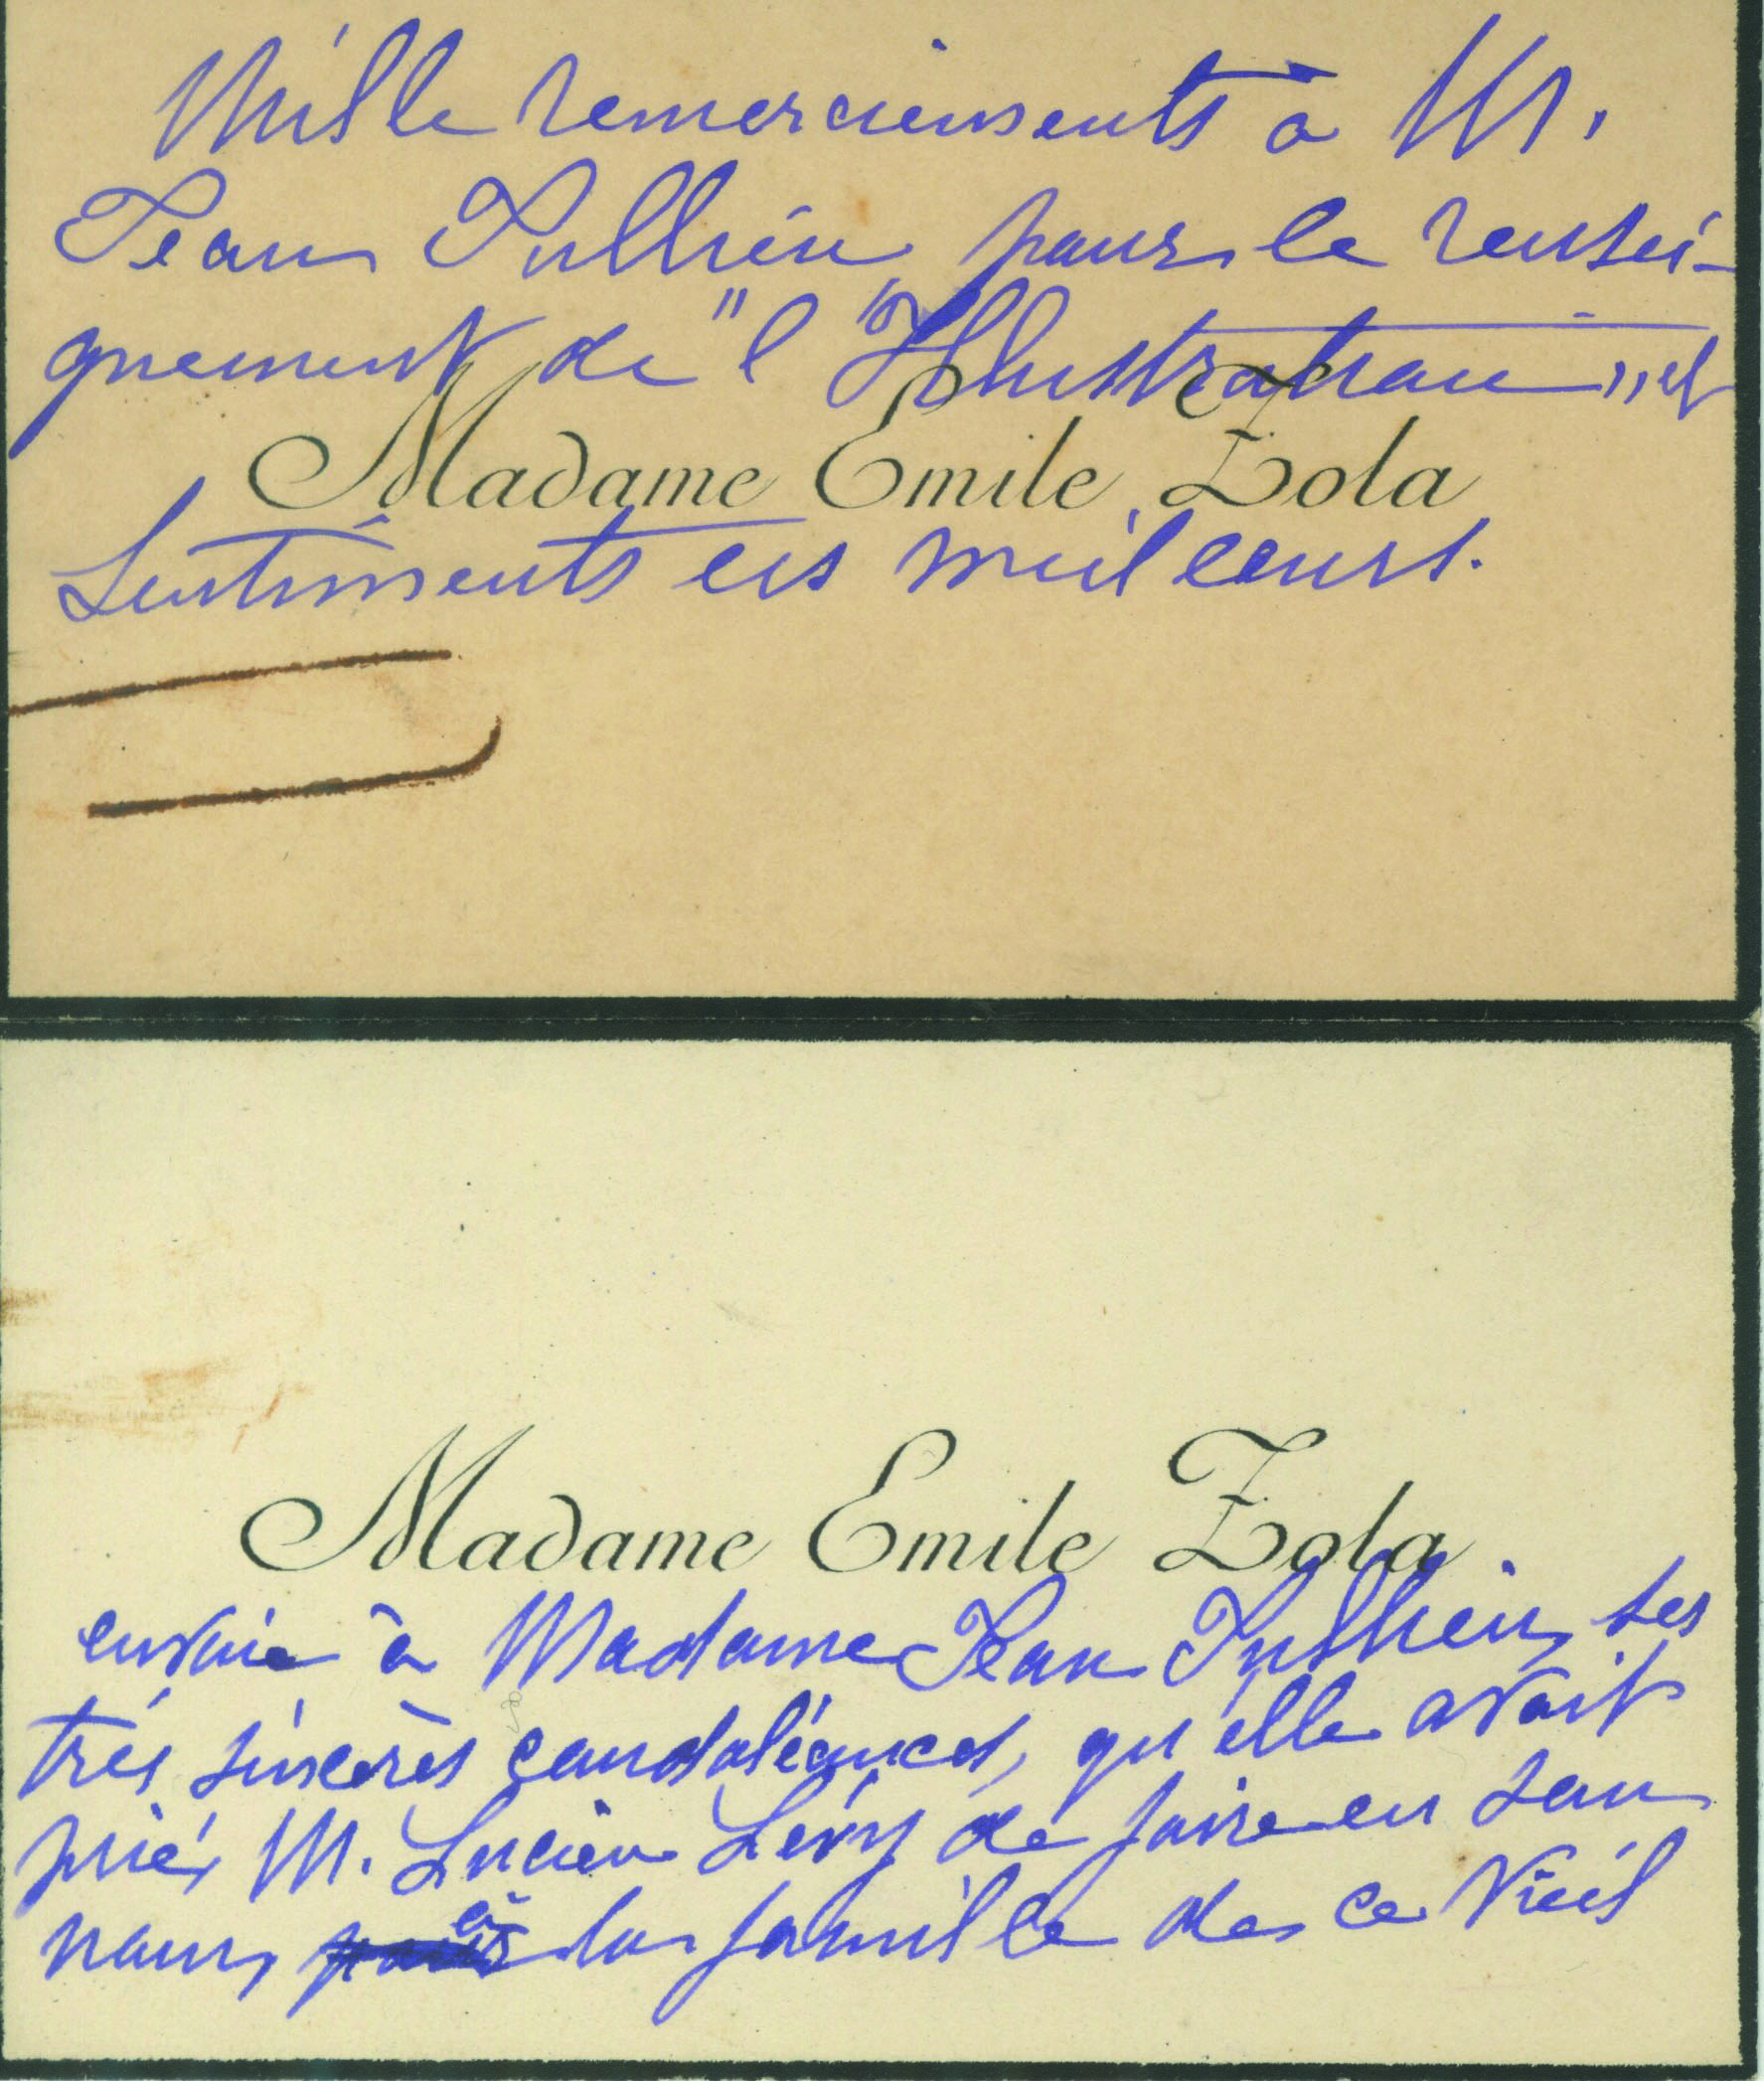 Mille remerciements à M.
Jean Jullien, pour le rensei-
gnement de "l'Illustration" et
Madame Emile Zola
Sentiments les meilleurs.
Madame Emile Zola
envoie à Madame Jean Jullien, ses
très sincères condoléances, qu'elle avait
prié, M. Lucien Lévy de faire en son
nom, à la famille de ce vieil